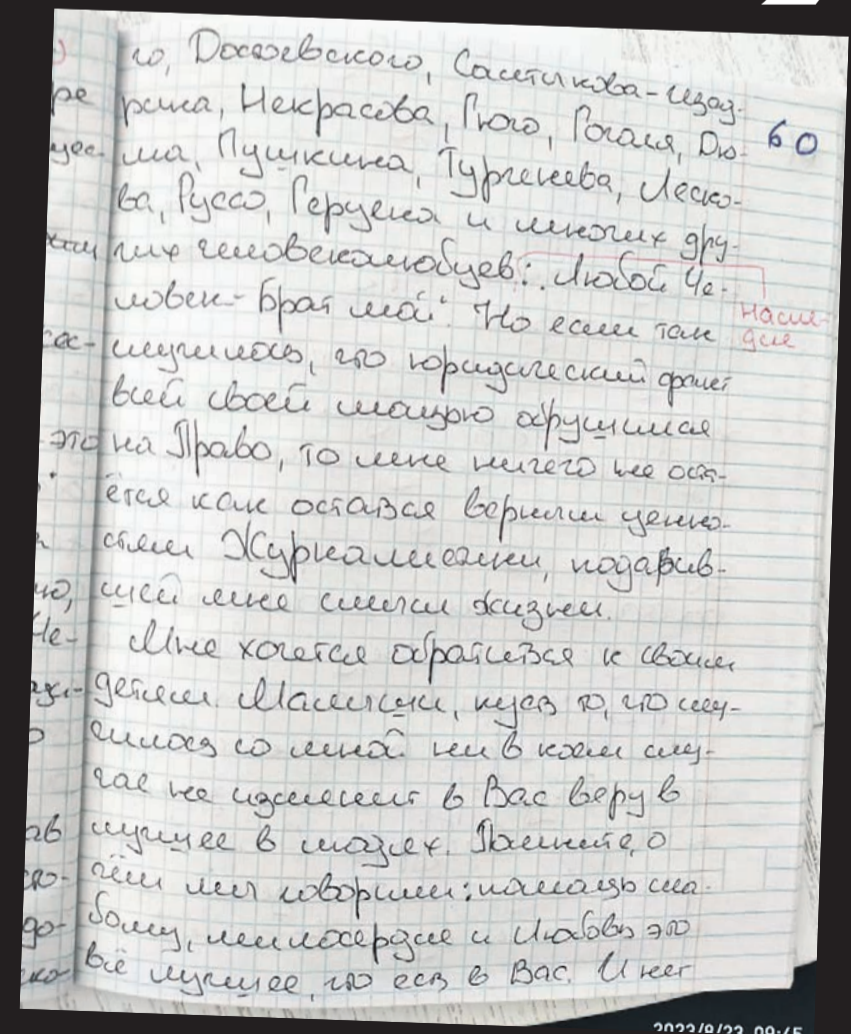 го, Достоевского, Салтыкова-Щед-
рина, Некрасова, Гюго, Гоголя, Дю-
60
ма, Пушкина, Тургенева, Леско-
ва, Руссо, Герцена и многих дру-
гих человеколюбцев: "Любой Че-
ловек - брат мой". Но если так
насле-
дие
случилось, что юридический фронт
всей своей мощью обрушился
на Право, то мне ничего не оста-
ётся как остаться верным ценно-
стям Журналистики, подарив-
шей мне смысл жизни.
Мне хочется обратиться к своим
детям. Малыши, пусть то, что слу-
чилось со мной ни в коем слу-
чае не изменит в Вас веру в
лучшее в людях. Помните, о
чём мы говорили: помощь сла-
бому, милосердие и Любовь это
всё лучшее, что есть в Вас. И нет
2022/9/23 09:45